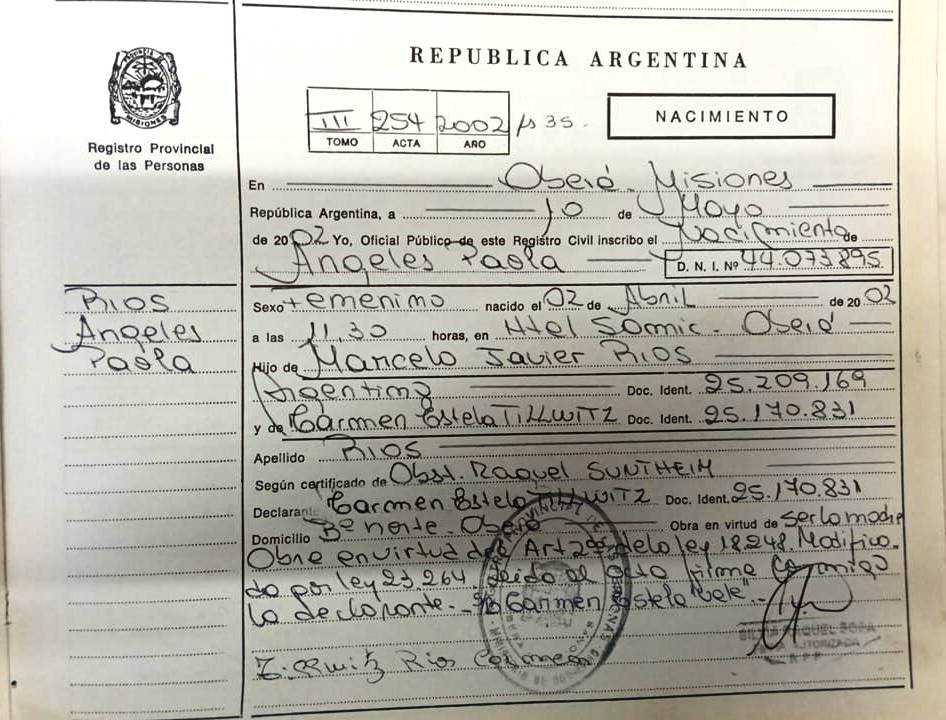 PROVINCIA DE
MISIONES
Registro Provincial
de las Personas
RIOS
Angeles
Paola
REPUBLICA ARGENTINA
III 254 2002 fs 35.
TOMO ACTA AÑO
NACIMIENTO
En Oberá - Misiones
República Argentina, a 10 de Mayo
de 2002 Yo, Oficial Público de este Registro Civil inscribo el Nacimiento de
Angeles Paola D. N. I. Nº 44.073.895
Sexo Femenino nacido el 02 de Abril de 2002
a las 11.30 horas, en Htal Samic - Oberá
Hijo de Marcelo Javier RIOS
Argentino Doc. Ident. 25.209.169
y de Carmen Estela TILLWITZ Doc. Ident. 25.170.831
Apellido RIOS
Según certificado de Obst. Raquel SUNTHEIM
Declarante Carmen Estela TILLWITZ Doc. Ident. 25.170.831
Domicilio Bº norte Oberá Obra en virtud de ser la madre
Obre en virtud del Art 2º de la ley 18248. Modifica-
da por ley 23.264 Leido el acta firma conmigo
la declarante.- Carmen Estela Vale".-
Rios Carmen